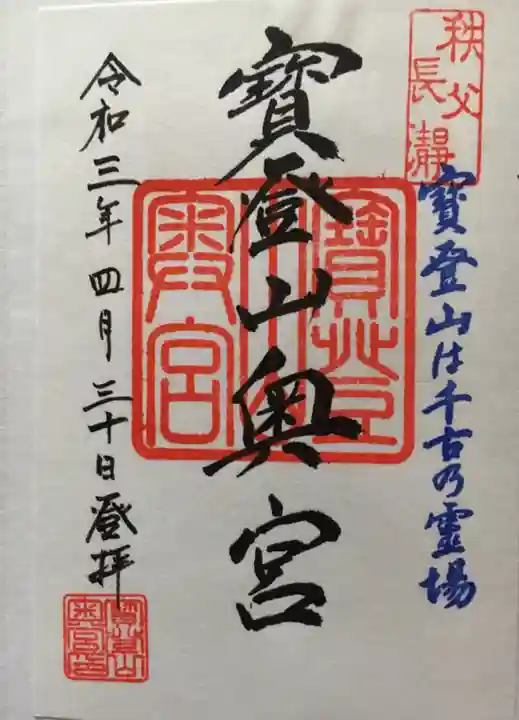 秩父
長瀞
寶登山は千古乃霊場
寶登山奥宮
寶登山
奥宮
令和三年四月三十日登拝
寶登山
奥宮印